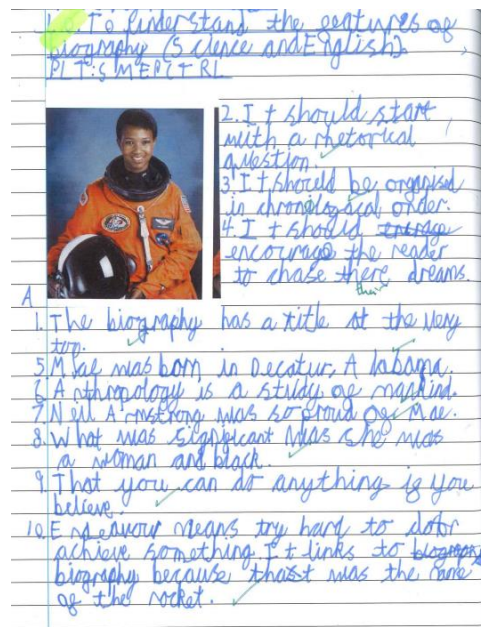 L.O. To understand the features of
biography (Science and English).
PLT: S M EP CT RL
2. It should start
with a rhetorical
question.
3. It should be organised
in chronological order.
4. It should
encourage the reader
to chase there dreams.
their
A
1. The biography has a title at the very
top.
5. Mae was born in Decatur, Alabama.
6. Anthropology is a study of mankind.
7. Neil Armstrong was so proud of Mae.
8. What was significant was she was
a woman and black.
9. That you can do anything if you
believe.
10. Endeavour means try hard to do or
achieve something. It links to
biography because that was the name
of the rocket.